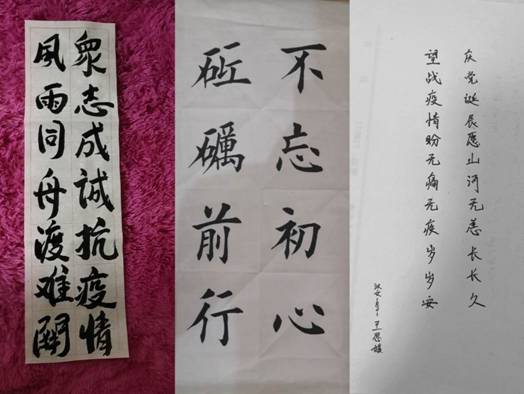 眾志成诚抗疫情
風雨同舟渡难關
不忘初心
砥礪前行
庆党诞辰愿山河无恙长长久
望战疫情盼无痛无疾岁岁安
王思